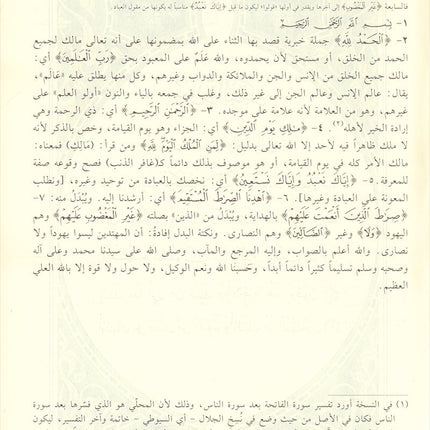 فالسابعة ﴿غَيْرِ الْمَغْضُوبِ﴾ إلى آخرها ويقدر في أولها «قولوا» ليكون ما قبل ﴿إِيَّاكَ نَعْبُدُ﴾ مناسباً له بكونها من مقول العباد.
١- بِسْمِ اللَّهِ الرَّحْمَٰنِ الرَّحِيمِ
٢- ﴿الْحَمْدُ لِلَّهِ﴾ جملة خبرية قصد بها الثناء على الله بمضمونها على أنه تعالى مالك لجميع
الحمد من الخلق، أو مستحق لأن يحمدوه، والله عَلَم على المعبود بحق ﴿رَبِّ الْعَالَمِينَ﴾ أي:
مالك جميع الخلق من الإنس والجن والملائكة والدواب وغيرهم، وكل منها يطلق عليه «عَالَم»،
يقال: عالم الإنس وعالم الجن إلى غير ذلك، وغلب في جمعه بالياء والنون «أولو العلم» على
غيرهم، وهو من العلامة لأنه علامة على موجده. ٣- ﴿الرَّحْمَٰنِ الرَّحِيمِ﴾ أي: ذي الرحمة وهي
إرادة الخير لأهله(٢). ٤- ﴿مَٰلِكِ يَوْمِ الدِّينِ﴾ أي: الجزاء وهو يوم القيامة، وخص بالذكر لأنه
لا ملك ظاهراً فيه لأحد إلا الله تعالى بدليل: ﴿لِمَنِ الْمُلْكُ الْيَوْمَ لِلَّهِ﴾ ومن قرأ: (مَالِكِ) فمعناه:
مالك الأمر كله في يوم القيامة، أو هو موصوف بذلك دائماً كـ(غافر الذنب) فصح وقوعه صفة
للمعرفة. ٥- ﴿إِيَّاكَ نَعْبُدُ وَإِيَّاكَ نَسْتَعِينُ﴾ أي: نخصك بالعبادة من توحيد وغيره، [ونطلب
المعونة على العبادة وغيرها]. ٦- ﴿اهْدِنَا الصِّرَٰطَ الْمُسْتَقِيمَ﴾ أي: أرشدنا إليه. ويُبْدَلُ منه: ٧-
﴿صِرَٰطَ الَّذِينَ أَنْعَمْتَ عَلَيْهِمْ﴾ بالهداية، ويُبْدَل من «الذين» بصلته ﴿غَيْرِ الْمَغْضُوبِ عَلَيْهِمْ﴾ وهم
اليهود ﴿وَلَا﴾ وغير ﴿الضَّآلِّينَ﴾ وهم النصارى. ونكتة البدل إفادةُ: أن المهتدين ليسوا يهوداً ولا
نصارى. والله أعلم بالصواب، وإليه المرجع والمآب، وصلى الله على سيدنا محمد وعلى آله
وصحبه وسلم تسليماً كثيراً دائماً أبداً، وحَسبنا الله ونعم الوكيل، ولا حول ولا قوة إلا بالله العلي
العظيم.
(١) في النسخة أورد تفسير سورة الفاتحة بعد سورة الناس، وذلك لأن المحلّي هو الذي فسّرها بعد سورة
الناس فكان في الأصل من حيث وضع في نُسخ الجلال - أي السيوطي - خاتمة وآخر التفسير، ليكون